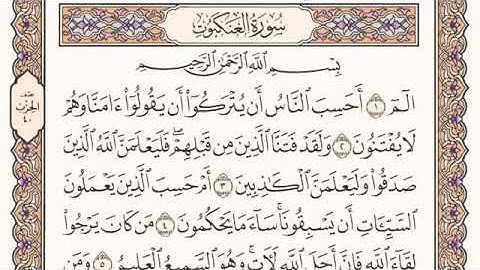 سُورَةُ العَنكَبُوتِ
بِسْمِ ٱللَّهِ ٱلرَّحْمَٰنِ ٱلرَّحِيمِ
الٓمٓ ١ أَحَسِبَ ٱلنَّاسُ أَن يُتْرَكُوٓا۟ أَن يَقُولُوٓا۟ ءَامَنَّا وَهُمْ
لَا يُفْتَنُونَ ٢ وَلَقَدْ فَتَنَّا ٱلَّذِينَ مِن قَبْلِهِمْ ۖ فَلَيَعْلَمَنَّ ٱللَّهُ ٱلَّذِينَ
صَدَقُوا۟ وَلَيَعْلَمَنَّ ٱلْكَـٰذِبِينَ ٣ أَمْ حَسِبَ ٱلَّذِينَ يَعْمَلُونَ
ٱلسَّيِّـَٔاتِ أَن يَسْبِقُونَا ۚ سَآءَ مَا يَحْكُمُونَ ٤ مَن كَانَ يَرْجُوا۟
لِقَآءَ ٱللَّهِ فَإِنَّ أَجَلَ ٱللَّهِ لَـَٔاتٍ ۚ وَهُوَ ٱلسَّمِيعُ ٱلْعَلِيمُ ٥ وَمَن
نصف
الحزب
٤٠